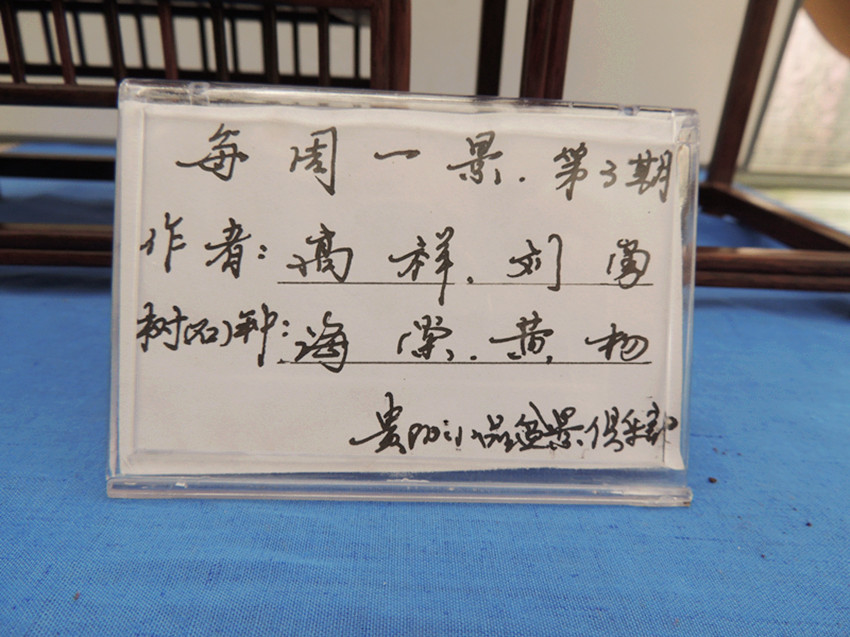 每周一景.第3期
作者:高祥.刘
树品种:海棠.黄杨
贵阳小品盆景俱乐部